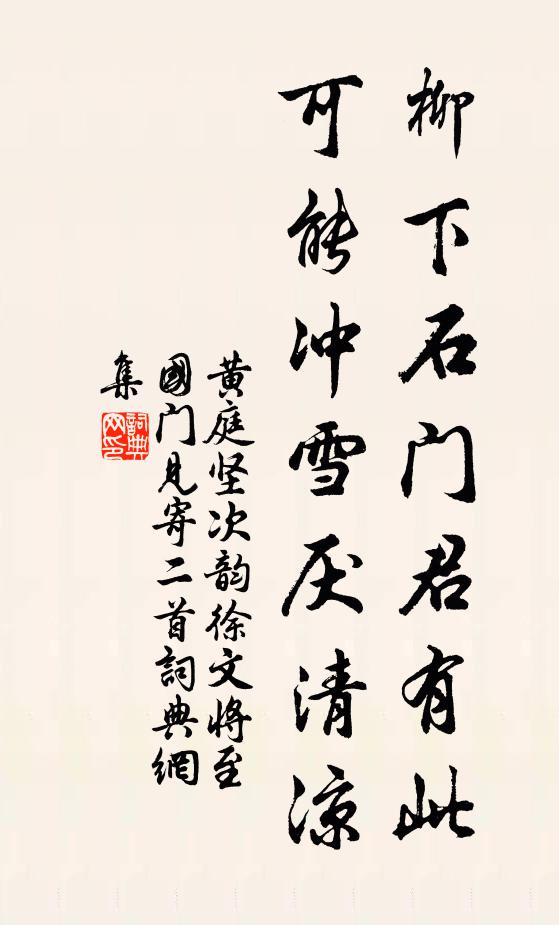 柳下石门君有此
可能冲雪厌清凉
黄庭坚次韵徐文将至
國门见寄二首詞典網
集
詞典
网印